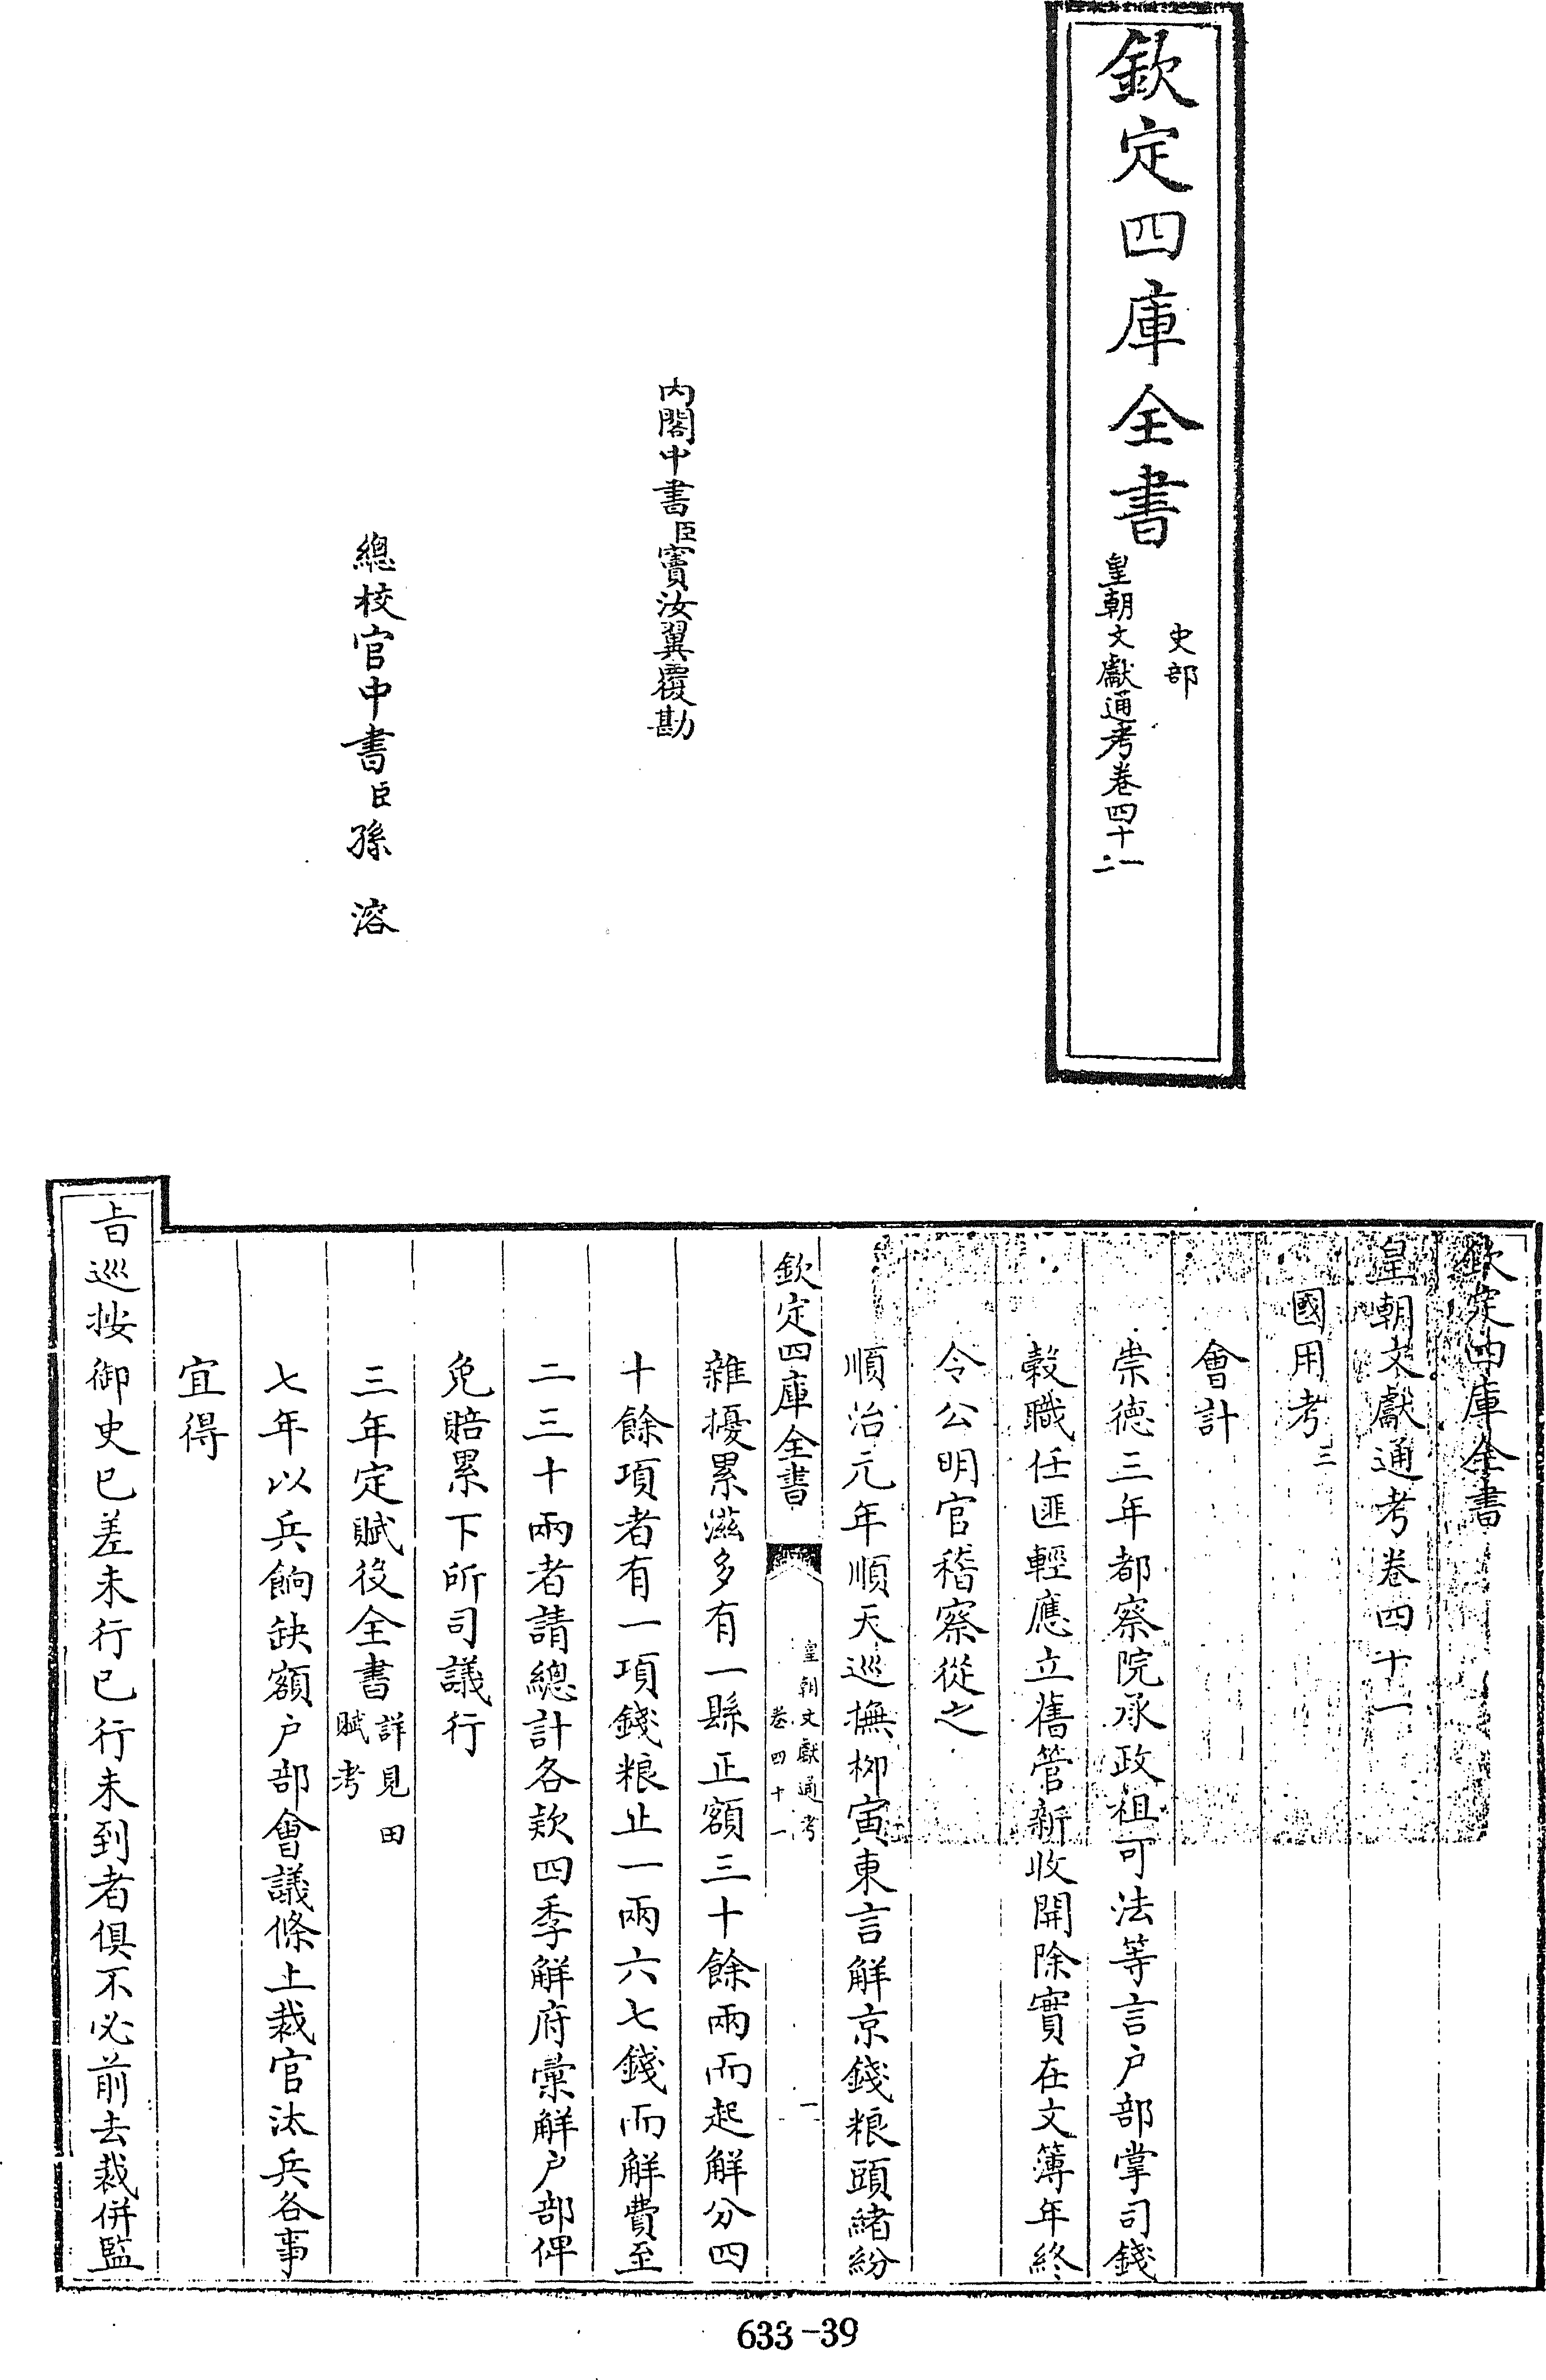 欽定四庫全書
史部
皇朝文獻通考卷四十一
二
内閣中書臣竇汝翼覆勘
總校官中書臣孫溶
欽定四庫全書
皇朝文獻通考卷四十一
國用考三
會計
崇德三年都察院承政祖可法等言户部掌司錢
穀職任匪輕應立舊管新收開除實在文簿年終
令公明官稽察從之
順治元年順天巡撫栁寅東言觧京錢粮頭緒紛
欽定四庫全書
皇朝文獻通考
卷四十一
一
雜擾累滋多有一縣正額三十餘兩而起觧分四
十餘項者有一項錢粮止一兩六七錢而觧費至
二三十兩者請總計各款四季觧府彙觧户部俾
免賠累下所司議行
三年定賦役全書詳見田
賦考
七年以兵餉缺額户部會議條上裁官汰兵各事
宜得
㫖巡按御史已差未行已行未到者俱不必前去裁併監
633-39